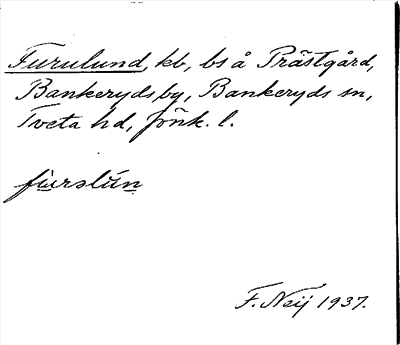 Furulund, kb, bs å Prästgård,
Bankeryds by, Bankeryds sn,
Tveta hd, Jönk. l.
furəlún
F. Neij 1937.